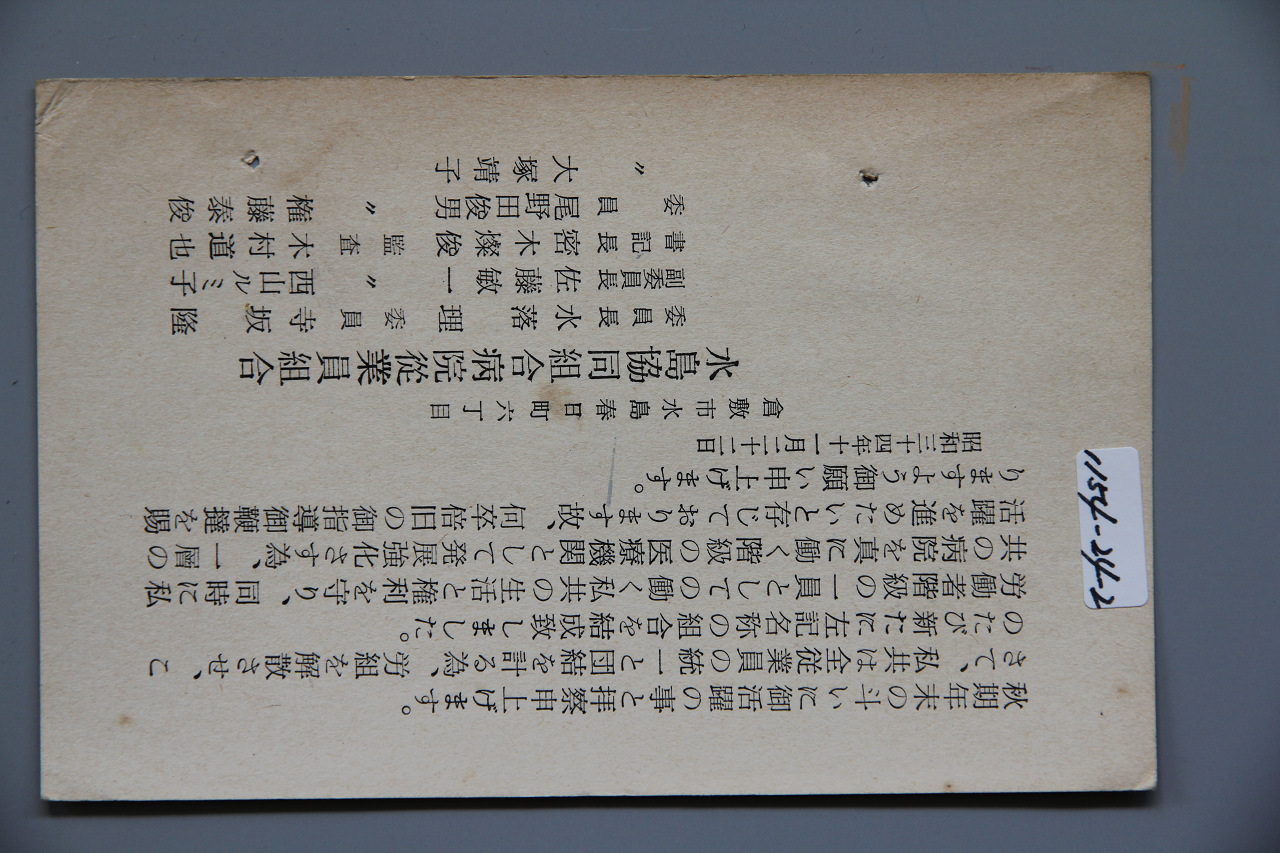 秋期年末の斗いに御活躍の事と拝察申上げます。
さて、私共は全従業員の統一と団結を計る為、労組を解散させ、こ
のたび新たに左記名称の組合を結成致しました。
労働者階級の一員としての働く私共の生活と権利を守り、同時に私
共の病院を真に働く階級の医療機関として発展強化さす為、一層の
活躍を進めたいと存じております故、何卒倍旧の御指導御鞭撻を賜
りますよう御願い申上げます。
昭和三十四年十一月二十二日
倉敷市水島春日町六丁目
水島協同組合病院從業員組合
委員長 水落理 委員 寺坂隆
副委員長 佐藤敏一 〃 西山ルミ子
書記長 密木燦俊 監査 木村道也
委員 尾野田俊男 〃 権藤泰俊
〃 大塚靖子
1154-24-2